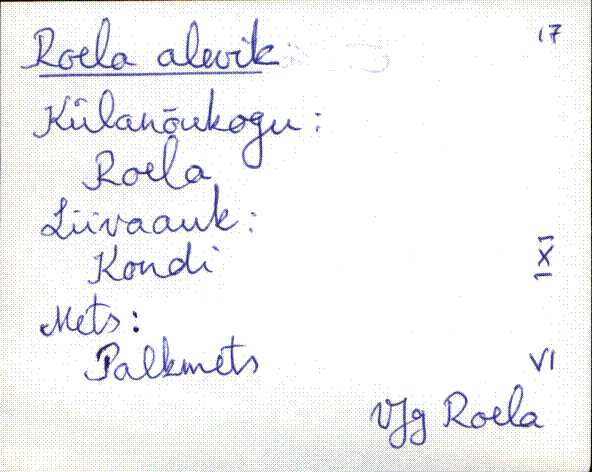 Roela alevik 17
Külanõukogu:
Roela
Liivaauk:
Kondi X
Mets:
Palkmets VI
VJg Roela